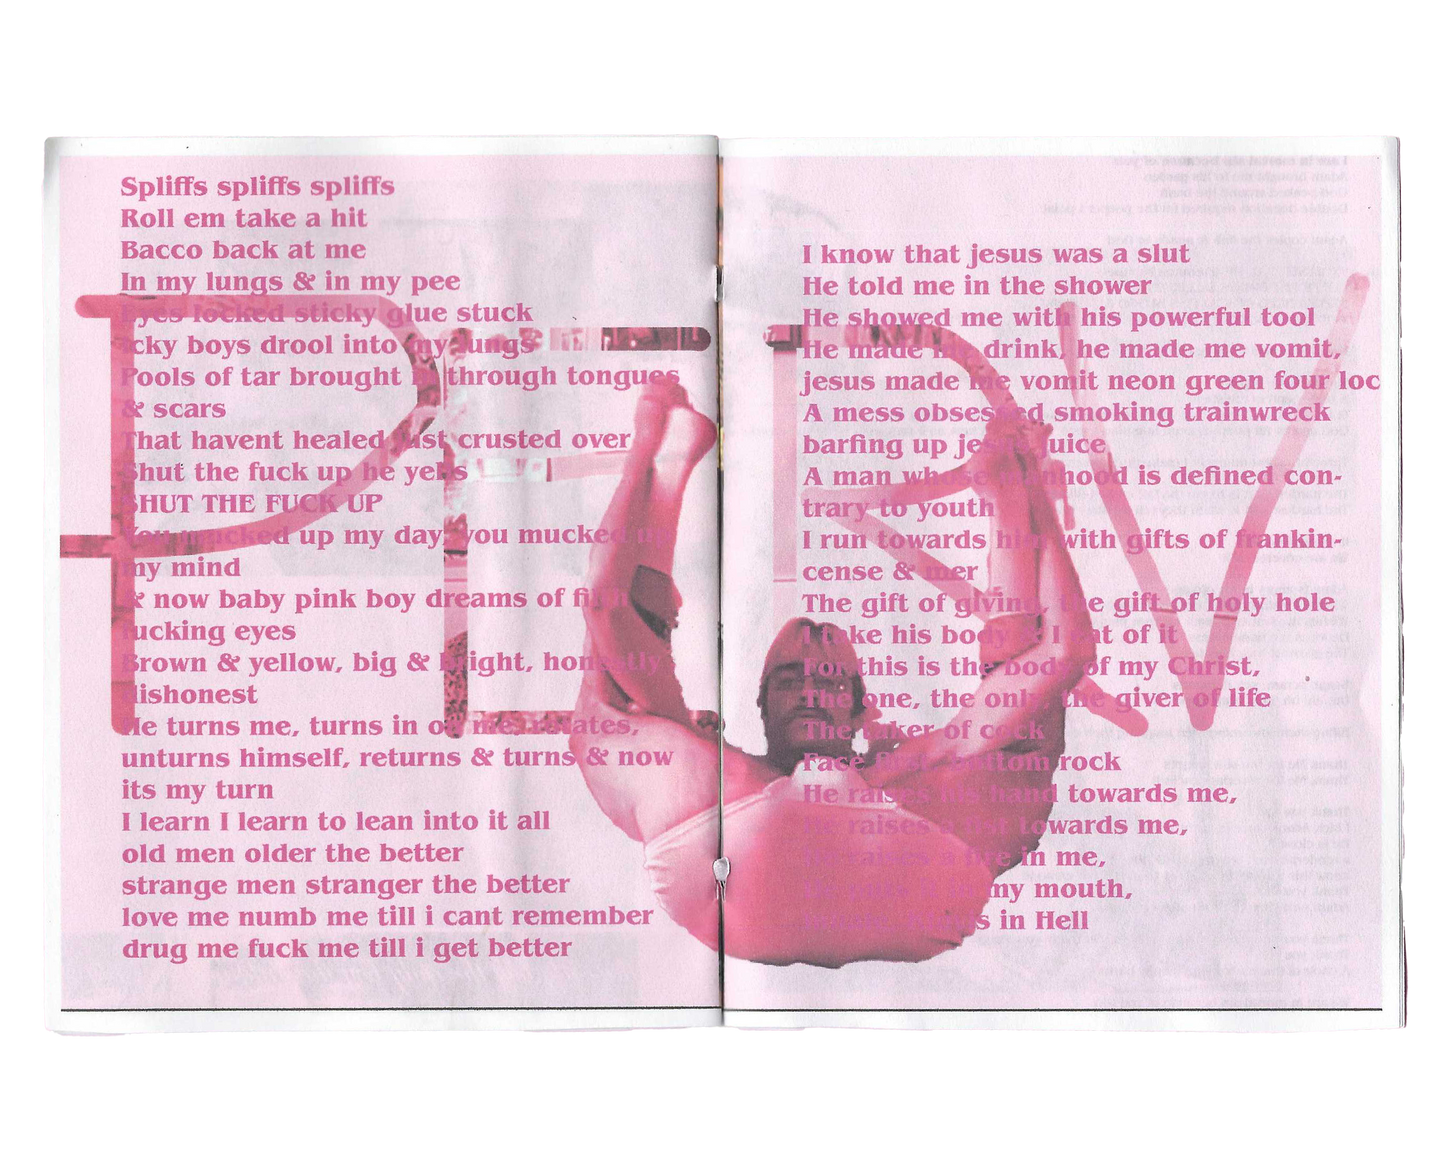 Spliffs spliffs spliffs
Roll em take a hit
Bacco back at me
In my lungs & in my pee
Eyes locked sticky glue stuck
Icky boys drool into my lungs
Pools of tar brought through tongues
& scars
That havent healed just crusted over
Shut the fuck up he yells
SHUT THE FUCK UP
You mucked up my day, you mucked up
my mind
& now baby pink boy dreams of filth
fucking eyes
Brown & yellow, big & bright, honestly
dishonest
He turns me, turns in on me, rotates,
unturns himself, returns & turns & now
its my turn
I learn I learn to lean into it all
old men older the better
strange men stranger the better
love me numb me till i cant remember
drug me fuck me till i get better
PERV
I know that jesus was a slut
He told me in the shower
He showed me with his powerful tool
He made me drink, he made me vomit,
jesus made me vomit neon green four loc
A mess obsessed smoking trainwreck
barfing up jesus juice
A man whose manhood is defined con-
trary to youth
I run towards him with gifts of frankin-
cense & mer
The gift of giving, the gift of holy hole
I take his body & I eat of it
For this is the body of my Christ,
The one, the only, the giver of life
The taker of cock
Face first, bottom rock
He raises his hand towards me,
He raises a fist towards me,
He raises a fire in me,
my mouth,
in Hell